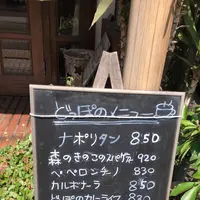 どっぽのメニュー
ナポリタン 850
森のきのこのスパゲティ 920
ペペロンチーノ 830
カルボナーラ 850
どっぽのカレーライス